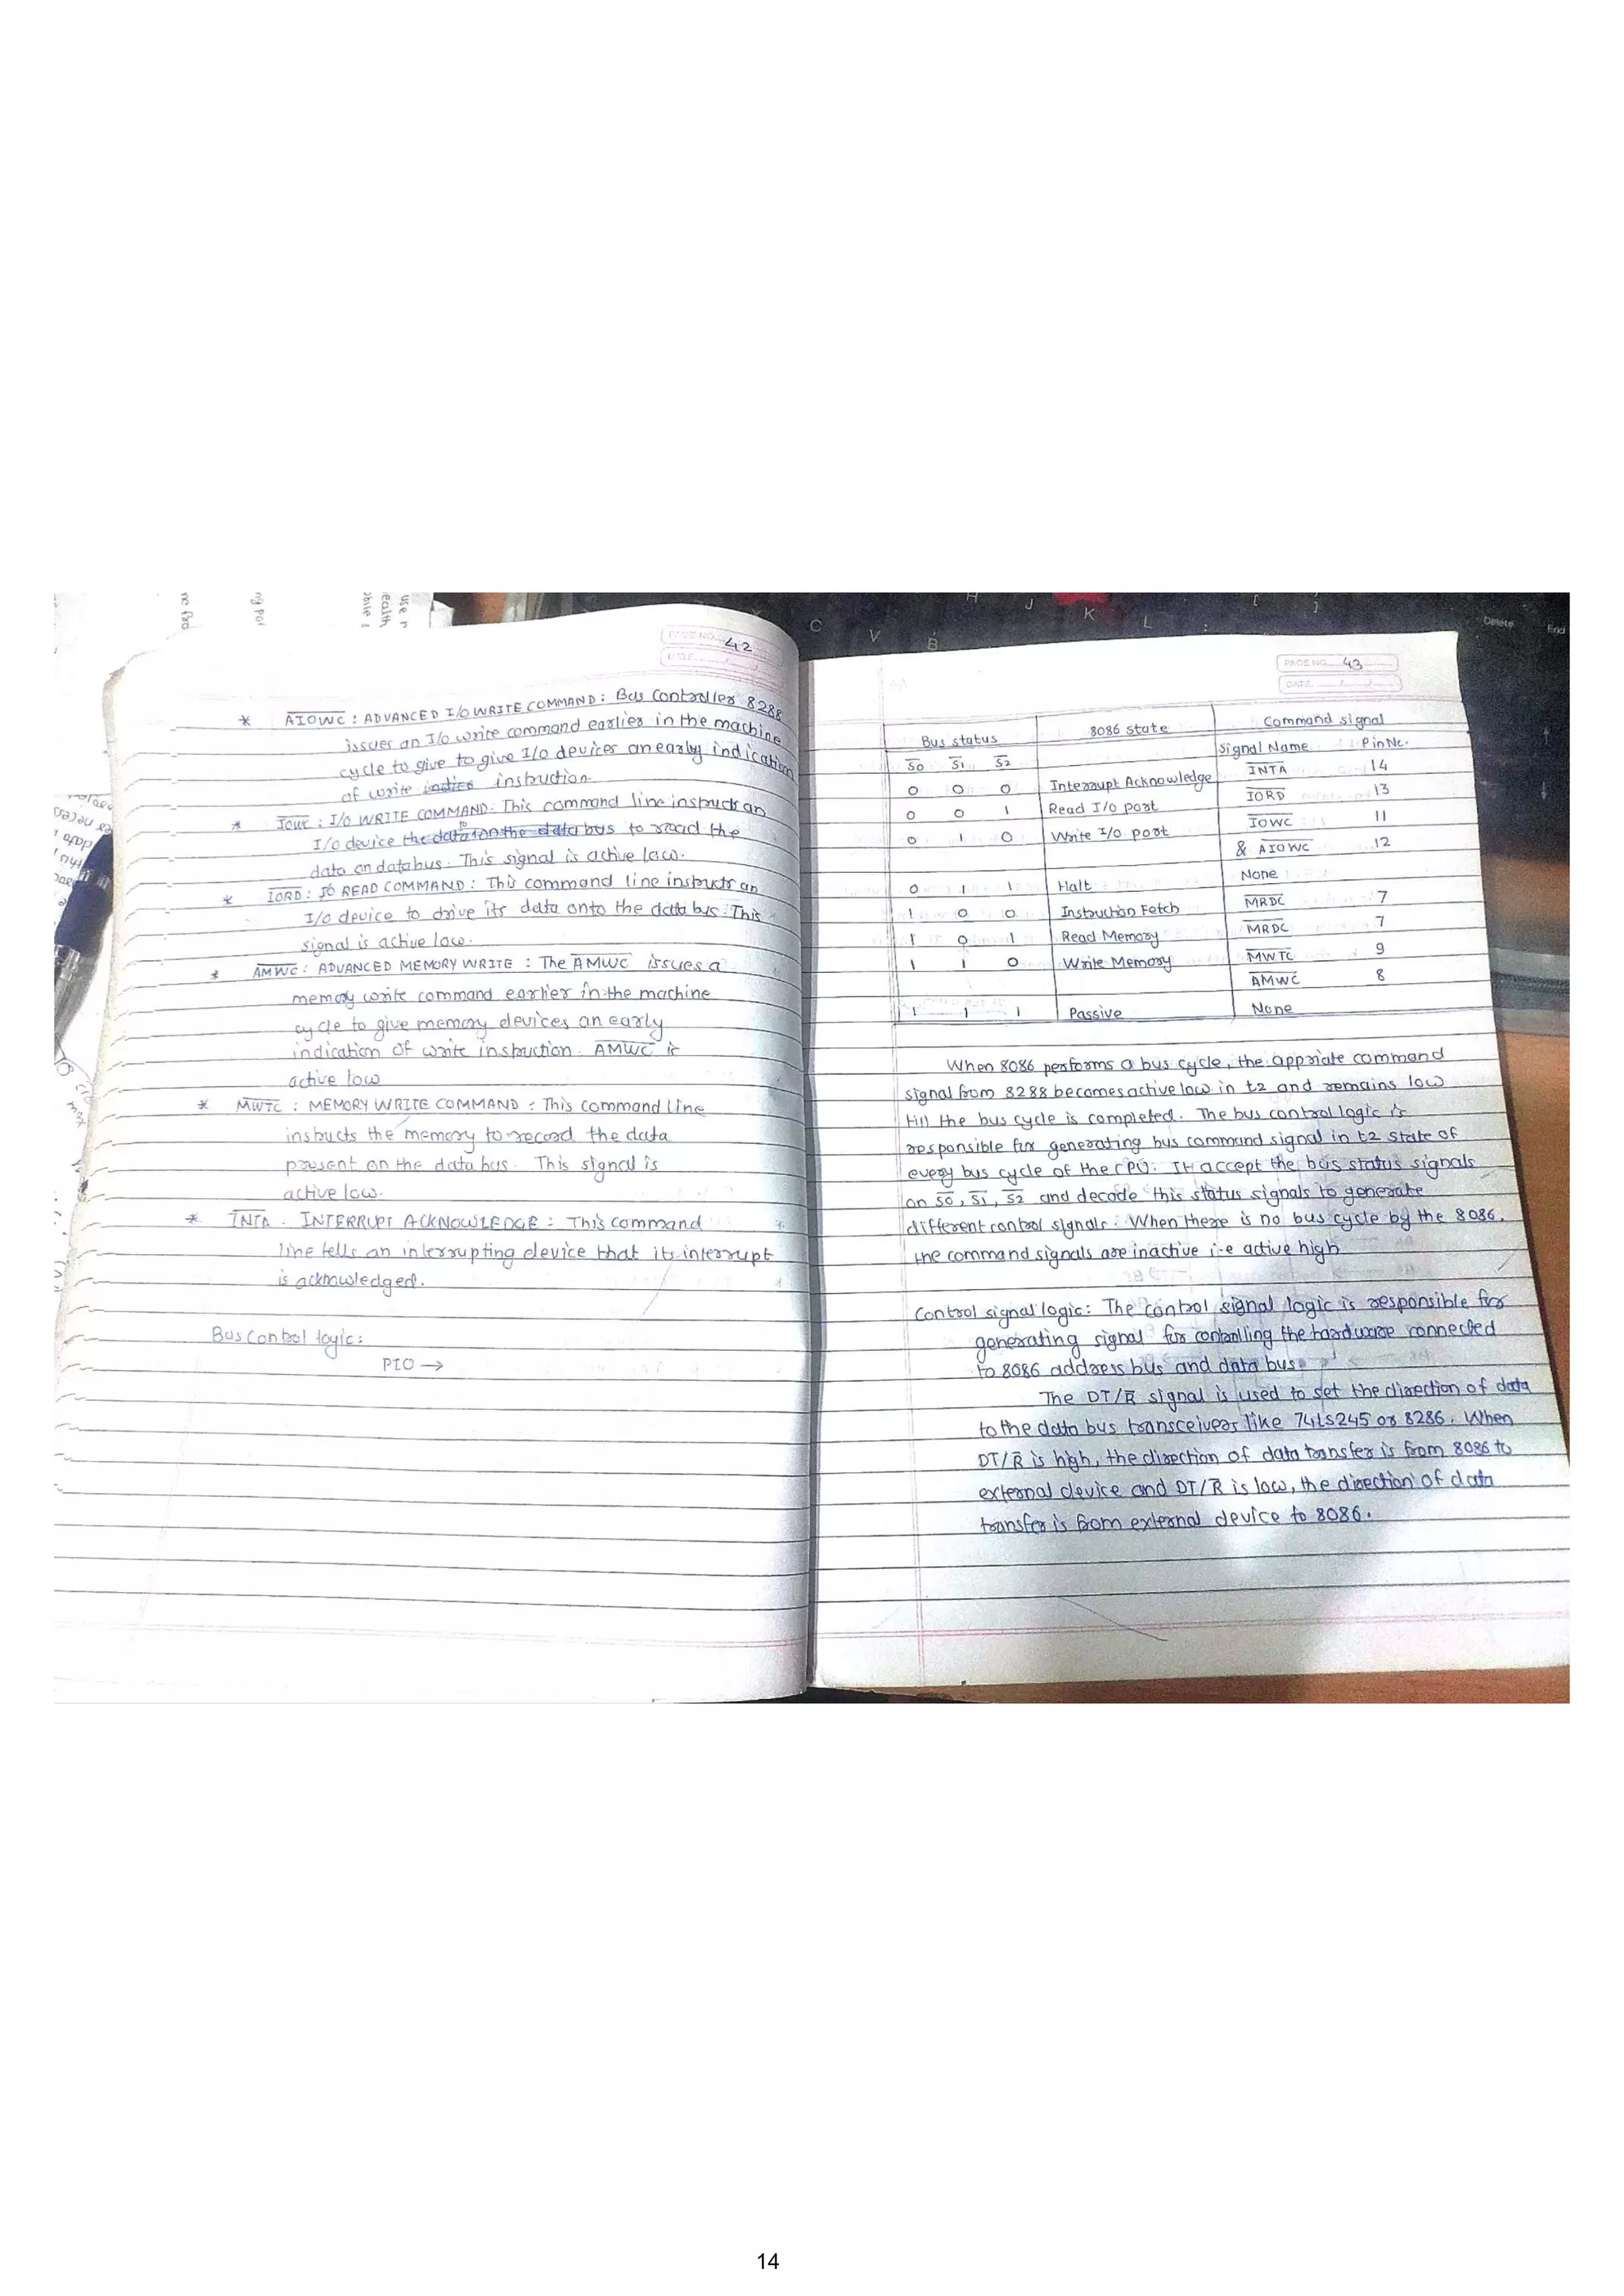 PAGE NO. 42
DATE
* A̅I̅O̅W̅C̅ : ADVANCED I/O WRITE COMMAND : Bus Controller 8288
issues an I/o write command earlier in the machine
cycle to give to give I/o devices an early indication
of write indica instruction.
* I̅O̅W̅C̅ : I/O WRITE COMMAND: This command line instructs an
I/o device the data to on the data bus to read the
data on data bus. This signal is active low.
* I̅O̅R̅D̅ : IO READ COMMAND : This command line instructs an
I/o device to drive its data onto the data bus. This
signal is active low.
* A̅M̅W̅C̅ : ADVANCED MEMORY WRITE : The A̅M̅W̅C̅ issues a
memory write command earlier in the machine
cycle to give memory devices an early
indication of write instruction. A̅M̅W̅C̅ is
active low
* M̅W̅T̅C̅ : MEMORY WRITE COMMAND : This command line
instructs the memory to record the data
present on the data bus. This signal is
active low.
* I̅N̅T̅A̅ . INTERRUPT ACKNOWLEDGE : This command
line tells an interrupting device that its interrupt
is acknowledged.
Bus Control logic:
PIO →
PAGE NO. 43
DATE
Bus status 8086 state Command signal
S̅0̅ S̅1̅ S̅2̅ Signal Name Pin No.
0 0 0 Interrupt Acknowledge I̅N̅T̅A̅ 14
0 0 1 Read I/o port I̅O̅R̅D̅ 13
0 1 0 Write I/o port I̅O̅W̅C̅ 11
& A̅I̅O̅W̅C̅ 12
0 1 1 Halt None
1 0 0 Instruction Fetch M̅R̅D̅C̅ 7
1 0 1 Read Memory M̅R̅D̅C̅ 7
1 1 0 Write Memory M̅W̅T̅C̅ 9
A̅M̅W̅C̅ 8
1 1 1 Passive None
When 8086 performs a bus cycle, the appriate command
signal from 8288 becomes active low in t2 and remains low
till the bus cycle is completed. The bus control logic is
responsible for generating bus command signal in t2 state of
every bus cycle of the CPU. It accept the bus status signals
on S̅0̅, S̅1̅, S̅2̅ and decode this status signals to generate
different control signals. When there is no bus cycle by the 8086,
the command signals are inactive i.e active high
Control signal logic: The control signal logic is responsible for
generating signal for controlling the hardware connected
to 8086 address bus and data bus.
The DT/R̅ signal is used to set the direction of data
to the data bus transceivers like 74LS245 or 8286. When
DT/R̅ is high, the direction of data transfer is from 8086 to
external device and DT/R̅ is low, the direction of data
transfer is from external device to 8086.
14